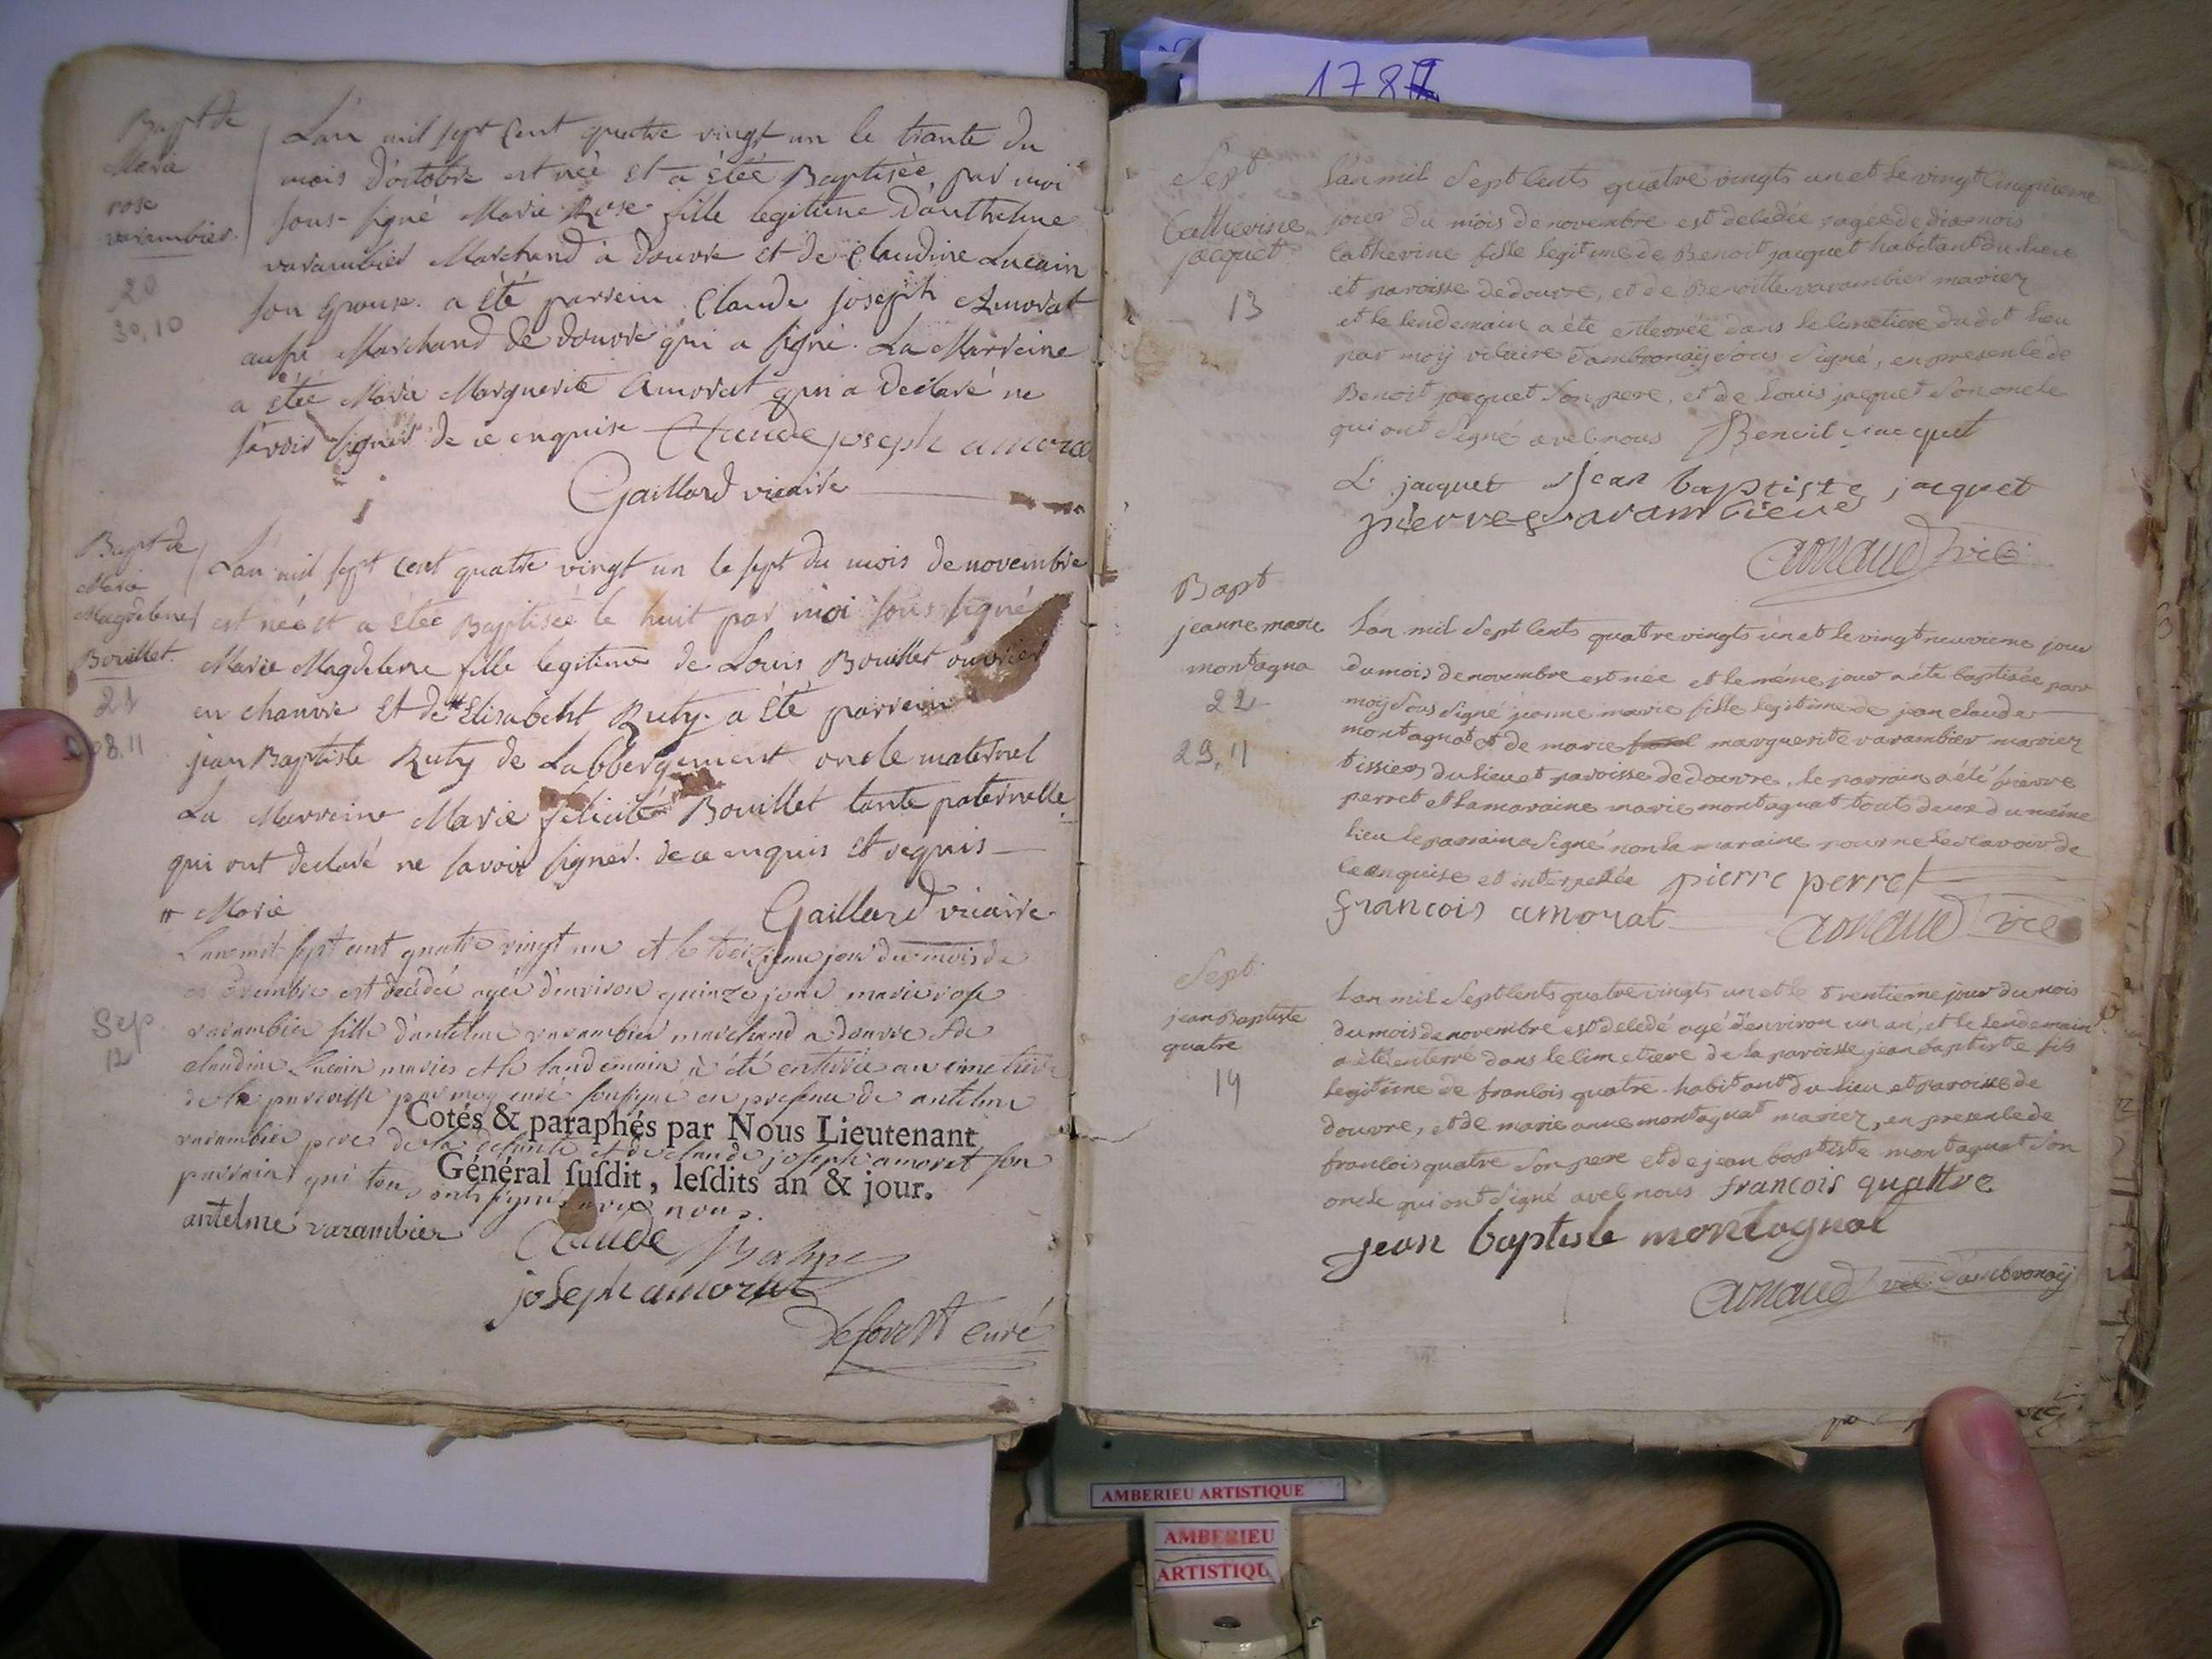 Bapt de
Marie
rose
varambier.
20
30,10
L'an mil sept cent quatre vingt un le trante du
mois d'octobre est neé et a étée Baptisée par moi
sous-signé Marie Rose fille legitime d'anthelme
varambier Marchand à douvre et de Claudine Lucain
son Epouse. a été parrein Claude joseph Amorat
aussi Marchand de douvre qui a signé. La Marreine
a étée Marie Marguerite Amorat qui a declaré ne
savoir signer de ce enquise Claude joseph amora
Gaillard vicaire
Bapt de
Marie
Magdelene
Bouillet.
21
8.11
L'an mil sept cent quatre vingt un le sept du mois de novembre
est neé et a étée Baptisée le huit par moi sous signé
Marie Magdelene fille legitime de Louis Bouillet ouvrier
en chanvre et de # Elisabeht Ruty. a été parrein
jean Baptiste Ruty de Labbergement oncle maternel
La Marreine Marie felicité Bouillet tante paternelle
qui ont declaré ne savoir signer. de ce enquis et requis
# Marie
Gaillard vicaire
Sep
12
L'an mil sept cent quatre vingt un et le treizieme jour du mois de
est decedée agée d'environ quinze jour marie rose
varambier fille d'antelme varambier marchand a douvre et de
claudine Lucain mariés et le landemain à été enterrée au cimetiere
de la paroisse par moy curé soussigné en presence de antelme
varambier pere de la defunte et de claude joseph amorat son
parrain qui tous ont signé avec nous.
Cotés & paraphés par Nous Lieutenant
Général ſuſdit, leſdits an & jour.
antelme varambier
Claude
joseph amorat
curé
1787
Sept
Catherine
jacquet
13
L'an mil Sept Cents quatre vingts un et le vingt Cinquieme
jour du mois de novembre est decedée, agée de dix mois
Catherine fille legitime de Benoit jacquet habitant du lieu
et paroisse de douvre, et de Benoitte varambier mariez
et le lendemain a été enterrée dans le Cimetiere dudit lieu
par moÿ vicaire d'ambronaÿ Sous Signé, en presence de
Benoit jacquet Son pere, et de Louis jacquet Son oncle
qui ont Signé avec nous Benoit jacquet
L. jacquet jean baptiste jacquet
pierre varambier
arnaud vic.
Bapt
jeanne marie
montagna
22
29,11
L'an mil Sept Cents quatre vingts un et le vingt neuvieme jour
du mois de novembre est née et le même jour a été baptisée par
moÿ Sous Signé jeanne marie fille legitime de jean claude
montagnat et de marie marguerite varambier mariez
tissiers du lieu et paroisse de douvre. le parrain a été pierre
perret et la maraine marie montagnat touts deux du même
lieu le parrain a Signé non la maraine pour ne le Scavoir de
ce enquise et interpellée pierre perret
francois amorat arnaud vic
Sept.
jean Baptiste
quatre
14
L'an mil Sept Cents quatre vingts un et le trentieme jour du mois
du mois de novembre est decedé agé d'environ un an, et le lendemain
a été enterré dans le Cimetiere de la paroisse jean baptiste fils
legitime de francois quatre habitant du lieu et paroisse de
douvre, et de marie anne montagnat mariez, en presence de
francois quatre Son pere et de jean baptiste montagnat Son
oncle qui ont Signé avec nous francois quattre
jean baptiste montagnat
arnaud vic. d'ambronaÿ
AMBERIEU ARTISTIQUE
AMBERIEU
ARTISTIQU